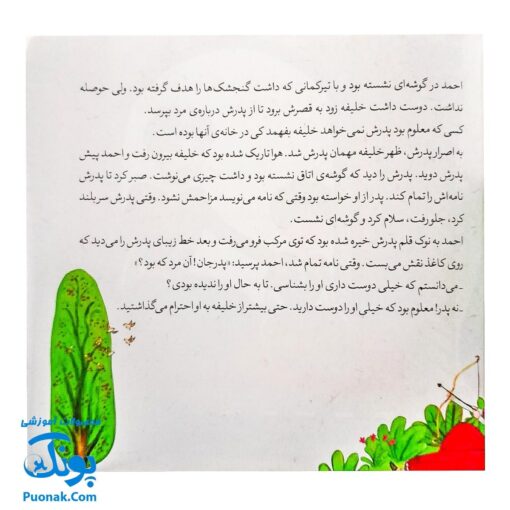 احمد در گوشه‌ای نشسته بود و با تیرکمانی که داشت گنجشک‌ها را هدف گرفته بود. ولی حوصله
نداشت. دوست داشت خلیفه زود به قصرش برود تا از پدرش درباره‌ی مرد بپرسد.
کسی که معلوم بود پدرش نمی‌خواهد خلیفه بفهمد کی در خانه‌ی آنها بوده است.
به اصرار پدرش، ظهر خلیفه مهمان پدرش شد. هوا تاریک شده بود که خلیفه بیرون رفت و احمد پیش
پدرش دوید. پدرش را دید که گوشه‌ی اتاق نشسته بود و داشت چیزی می‌نوشت. صبر کرد تا پدرش
نامه‌اش را تمام کند. پدر از او خواسته بود وقتی که نامه می‌نویسد مزاحمش نشود. وقتی پدرش سر بلند
کرد، جلو رفت، سلام کرد و گوشه‌ای نشست.
احمد به نوک قلم پدرش خیره شده بود که توی مرکب فرو می‌رفت و بعد خط زیبای پدرش را می‌دید که
روی کاغذ نقش می‌بست. وقتی نامه تمام شد، احمد پرسید: «پدرجان! آن مرد که بود؟»
ـ می‌دانستم که خیلی دوست داری او را بشناسی. تا به حال او را ندیده بودی؟
ـ نه پدر! معلوم بود که خیلی او را دوست دارید. حتی بیشتر از خلیفه به او احترام می‌گذاشتید.
آموزشی
پونک
Puonak.Com